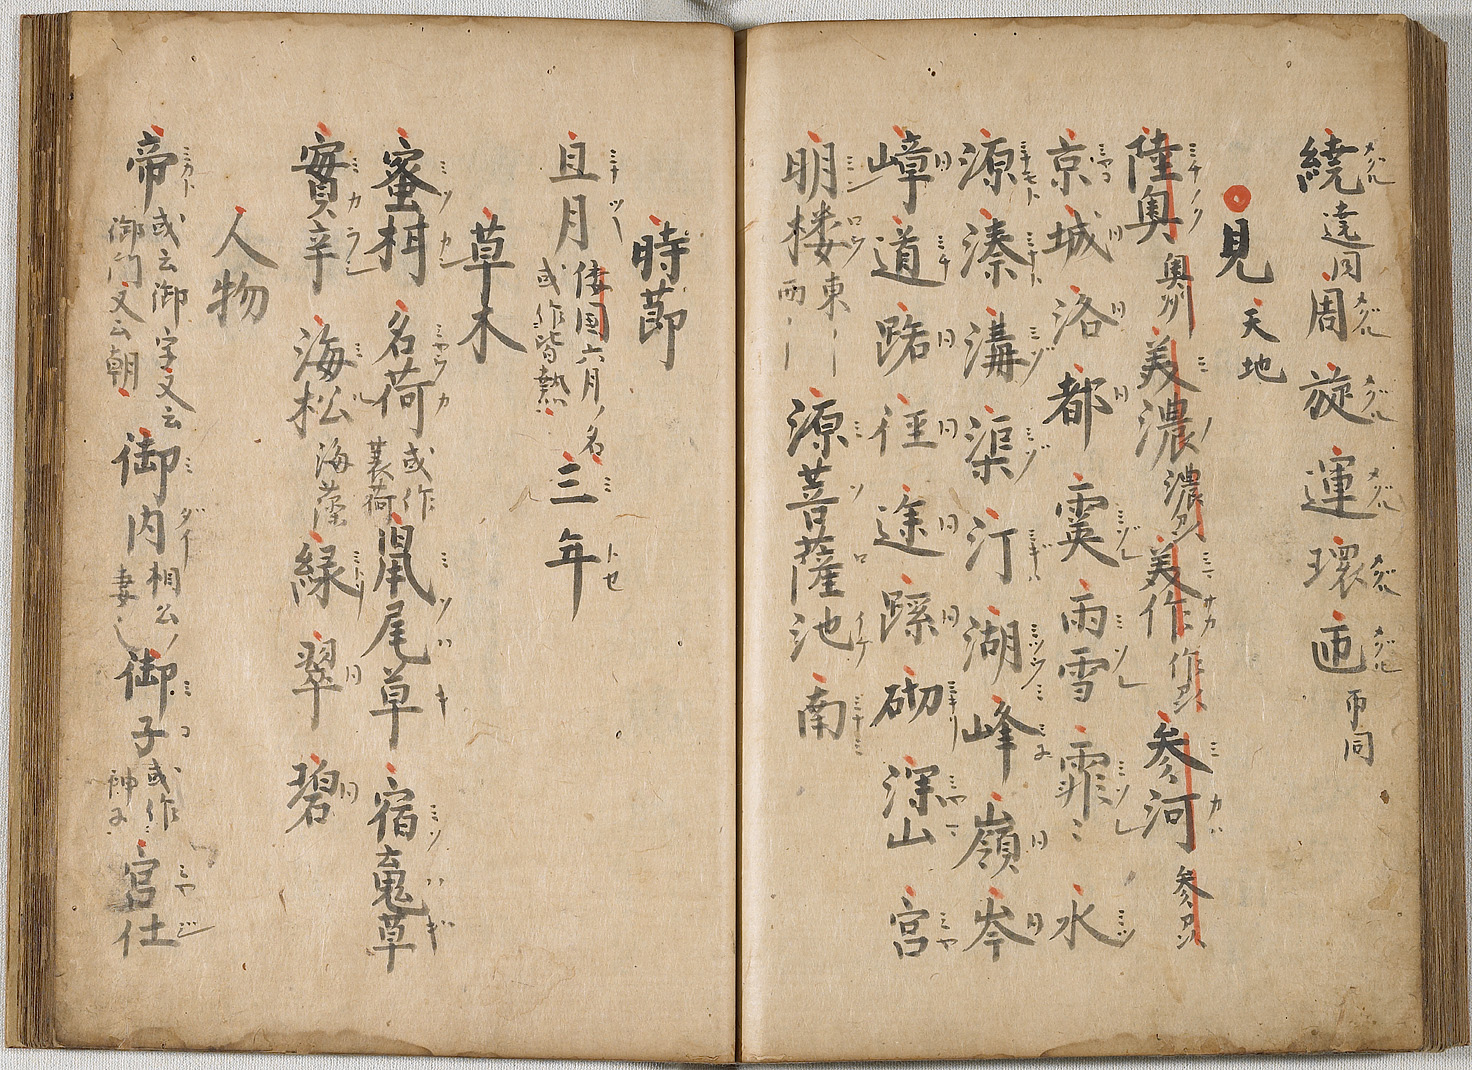 繞メグル 遶同 周メグル 旋メグル 運メグル 環メグル 匝メグル 帀同
見 天地
陸奥ミチノク 奥州 美濃ミノ 濃州 美作ミマサカ 作州 参河ミカハ 参州
京ミヤコ 城同 洛同 都同 霙ミゾレ 雨雪ミゾレ 霏〻ミゾレ 水ミヅ
源ミナモト 湊ミナト 溝ミゾ 渠ミゾ 汀ミギハ 湖ミヅウミ 峰ミネ 嶺同 岑同
嶂同 道ミチ 路同 径同 途同 蹊同 砌ミギリ 深山ミヤマ 宮ミヤ
明楼ミンロウ 東｜西｜ 源菩薩池ミソロイケ 南ミナミ
時節
且月ミナヅキ 倭国六月ノ名或作皆熱 三年ミトセ
草木
蜜柑ミツカン 名荷ミヤウカ 或作蘘荷 鼠尾草ミソハキ 宿䒤草ミツハギ
実辛ミカラシ 海松ミル 海薩 緑ミドリ 翠同 碧同
人物
帝ミカト 或云御字又云御門又云朝 御内ミダイ 相公ノ妻也 御子ミコ 或作神子 宮仕ミヤジ